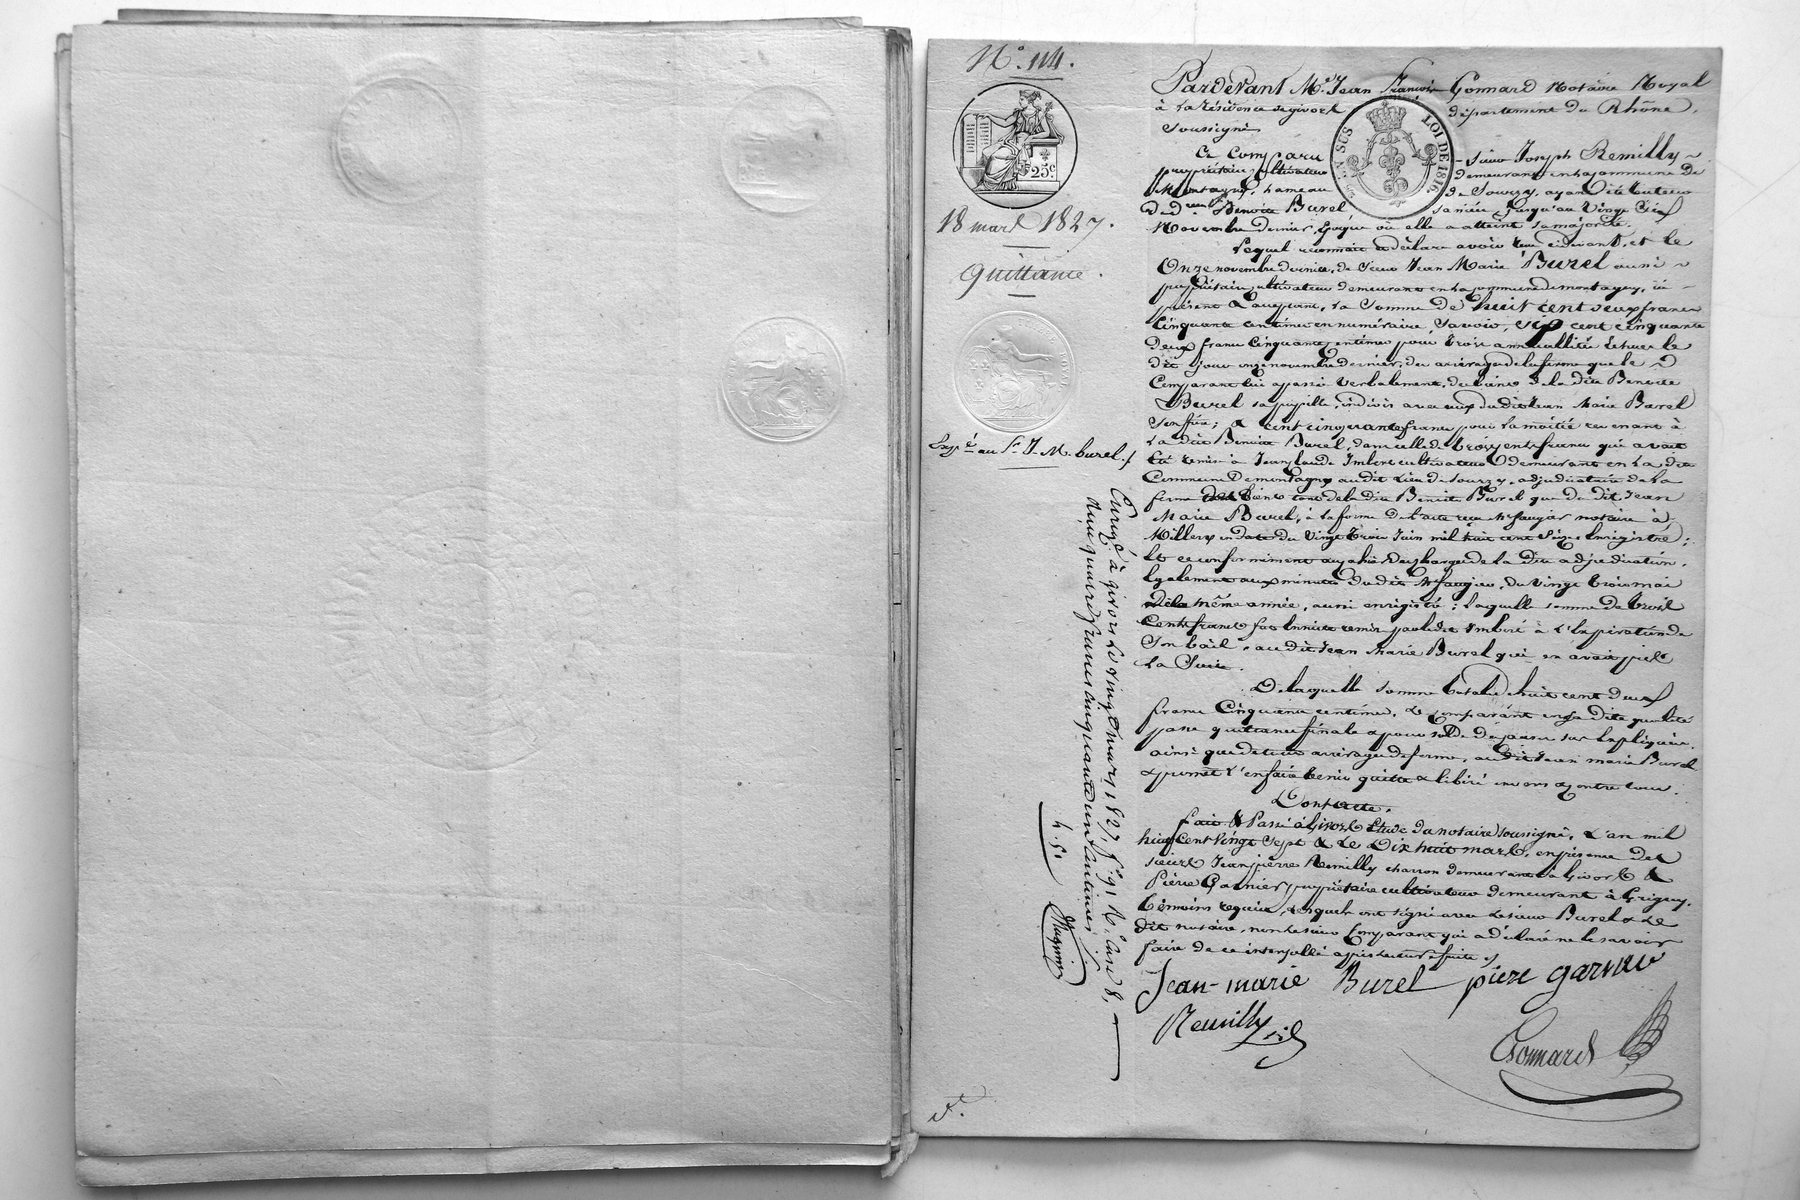 N.° 114.
25c
18 mars 1827.
Quittance.
Exp.é au S.r J. M. burel.
EN SUS
LOI DE 1816.
Pardevant M.e Jean François Gonnard Notaire Royal
à la résidence de givors département du Rhône,
soussigné
A Comparu sieur Joseph Remilly
propriétaire cultivateur demeurant en la commune de
Montagny, hameau de Sourzy, ayant été tuteur
de d.lle Benoite Burel sa nièce, jusqu'au vingt six
Novembre dernier, époque où elle a atteint sa majorité.
Lequel reconnait & déclare avoir reçu cidevant, et le
Onze novembre dernier, de sieur Jean Marie Burel aussi
propriétaire cultivateur demeurant en la commune de montagny, ici
présent & acceptant, la somme de huit cent deux francs
Cinquante centimes en numéraire, savoir, cinquante
deux francs Cinquante centimes pour trois annuallités échues le
dit jour onze novembre dernier, des arrérages de la ferme que le
Comparant lui a passée verbalement, des biens de la dite Benoite
Burel sa pupille, indivis avec ceux du dit Jean Marie Burel
son frère; & cent cinquante francs pour la moitié revenant à
la dite Benoite Burel, dans celle de trois cents francs qui avait
été remise à Jean Claude Imbert cultivateur demeurant en la dite
Commune de montagny au dit lieu de sourzy, adjudicataire de la
ferme des biens tant de la dite Benoite Burel que du dit Jean
Marie Burel, à la forme de l'acte reçu M.e faugier notaire à
Millery en date du vingt trois Juin mil huit cent Seize Enregistré;
Et ce conformément au cahier des charges de la dite adjudication,
Egalement aux minutes du dit M.e faugier, du vingt trois mai
même année, aussi enregistré; laquelle somme de trois
Cents francs fut Ensuite remise par le dit Imbert à l'Expiration de
Son bail, au dit Jean Marie Burel qui en avait pris
la Suite.
De laquelle somme totale de huit cent deux
francs Cinquante centimes, le comparant en sa dite qualité
passe quittance finale & pour solde de
ainsi que de tous arrérages de ferme, au dit Jean marie Burel
& promet l'en faire tenir quitte & libéré envers & contre tous.
Dont acte.
fait & Passé à Givors Etude du notaire soussigné, L'an mil
huit Cent Vingt Sept & le Dix huit mars, en présence des
sieurs Jean pierre Remilly charron demeurant à Givors &
Pierre Garnier propriétaire cultivateur demeurant à Grigny,
témoins requis, lesquels ont signé avec le sieur Burel & le
dit notaire, non le sieur Comparant qui a déclaré ne le savoir
faire de ce interpellé après lecture faite
Jean-marie Burel piere garnier
Remilly
Gonnard
Enreg.é à givors le vingt mars 1827, f.° 91 R. case 8,
Reçu quatre francs cinquante centimes
4. 5